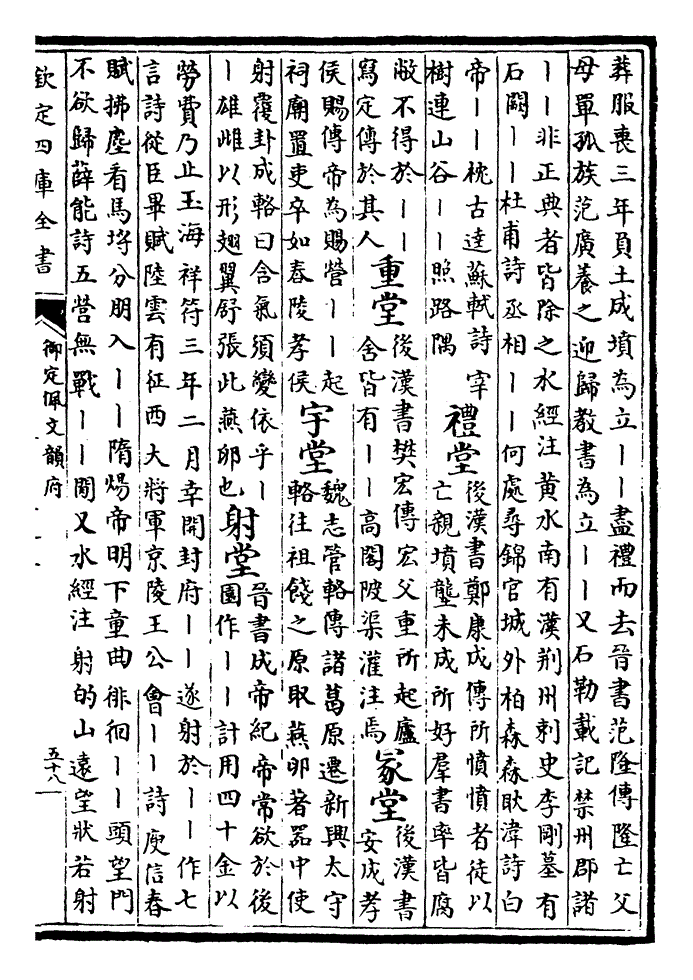 葬服喪三年負土成墳為立丨丨盡禮而去晉書范隆傳隆亡父
母單孤族范廣養之迎歸教書為立丨丨又石勒載記禁州郡諸
丨丨非正典者皆除之水經注黄水南有漢荆州刺史李剛墓有
石闕丨丨杜甫詩丞相丨丨何處尋錦官城外柏森森耿湋詩白
帝丨丨枕古逵蘇軾詩宰
樹連山谷丨丨照路隅
禮堂
後漢書鄭康成傳所憤憤者徒以
亡親墳壟未成所好羣書率皆腐
敝不得於丨丨
寫定傳於其人
重堂
後漢書樊宏傳宏父重所起廬
舍皆有丨丨高閣陂渠灌注焉
冢堂
後漢書
安成孝
侯賜傳帝為賜營丨丨起
祠廟置吏卒如舂陵孝侯
宇堂
魏志管輅傳諸葛原遷新興太守
輅往祖餞之原取燕卵著器中使
射覆卦成輅曰含氣須變依乎丨
丨雄雌以形翅翼舒張此燕卵也
射堂
晉書成帝紀帝常欲於後
園作丨丨計用四十金以
勞費乃止玉海祥符三年二月幸開封府丨丨遂射於丨丨作七
言詩從臣畢賦陸雲有征西大將軍京陵王公會丨丨詩庾信春
賦拂塵看馬埒分朋入丨丨隋煬帝明下童曲徘徊丨丨頭望門
不欲歸薛能詩五營無戰丨丨閒又水經注射的山遠望狀若射
欽定四庫全書
御定佩文韻府
五十八